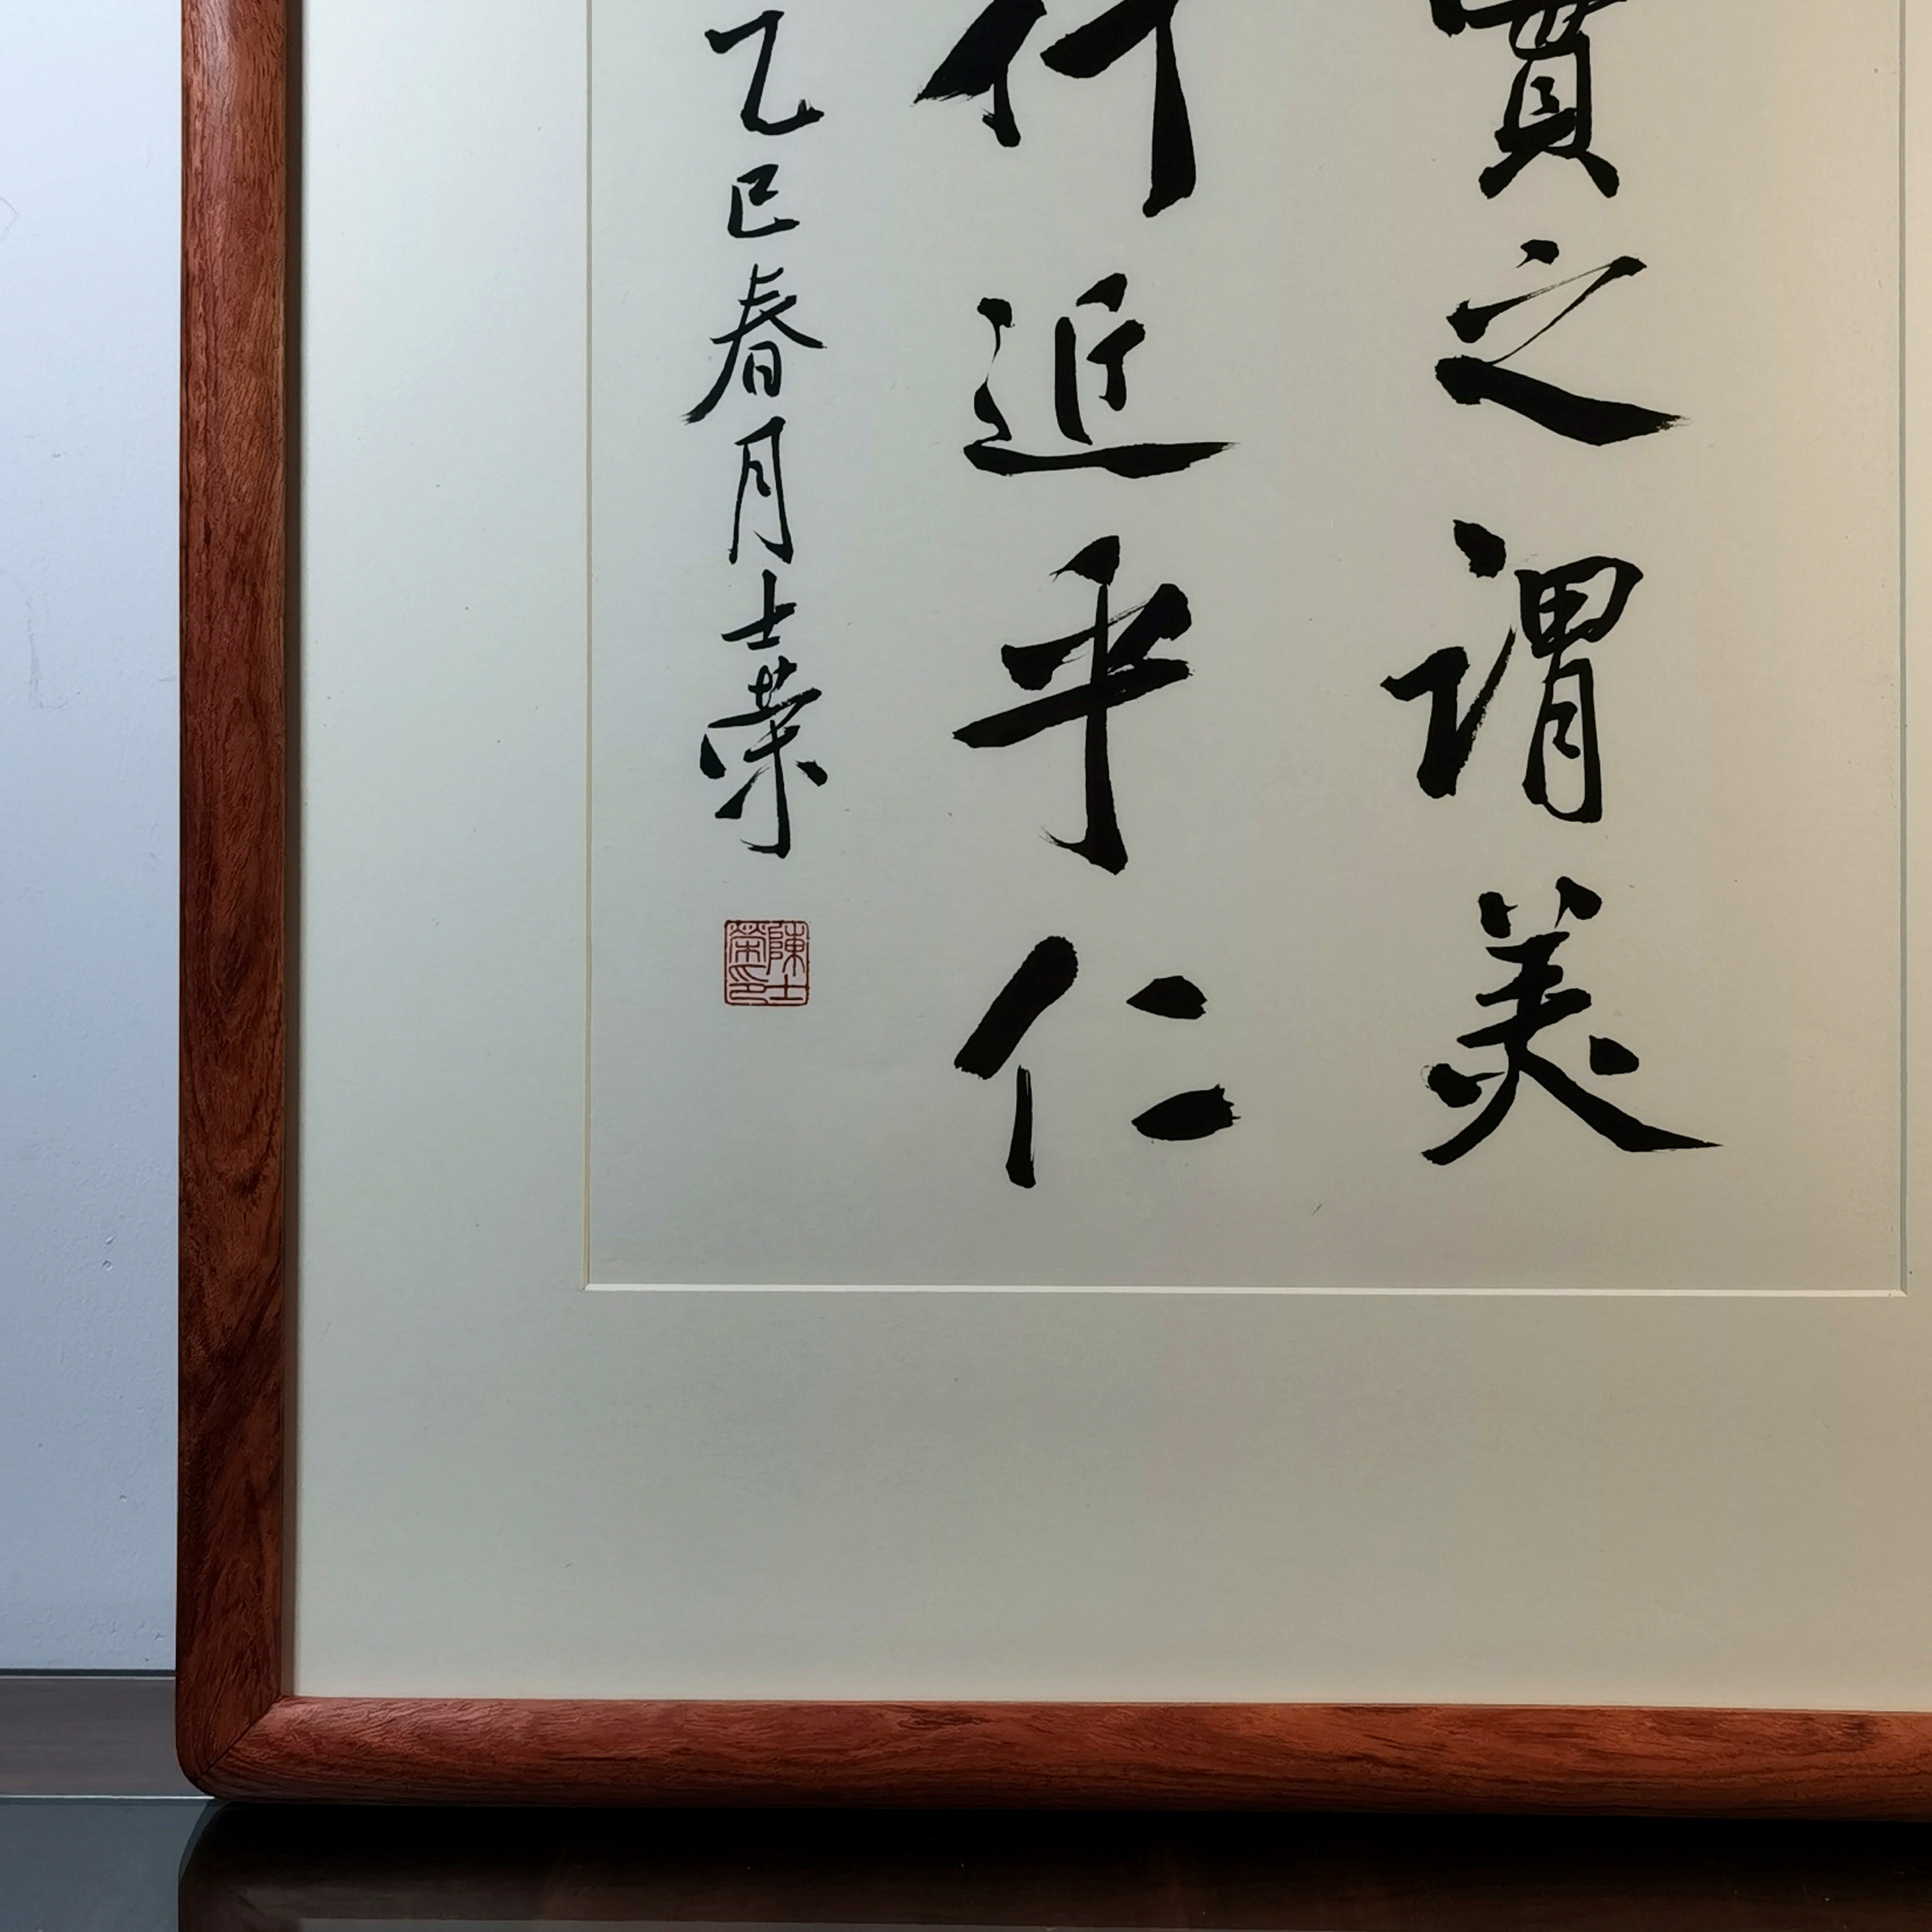 實之謂美
行近乎仁
乙巳春月士荣
陳士榮印